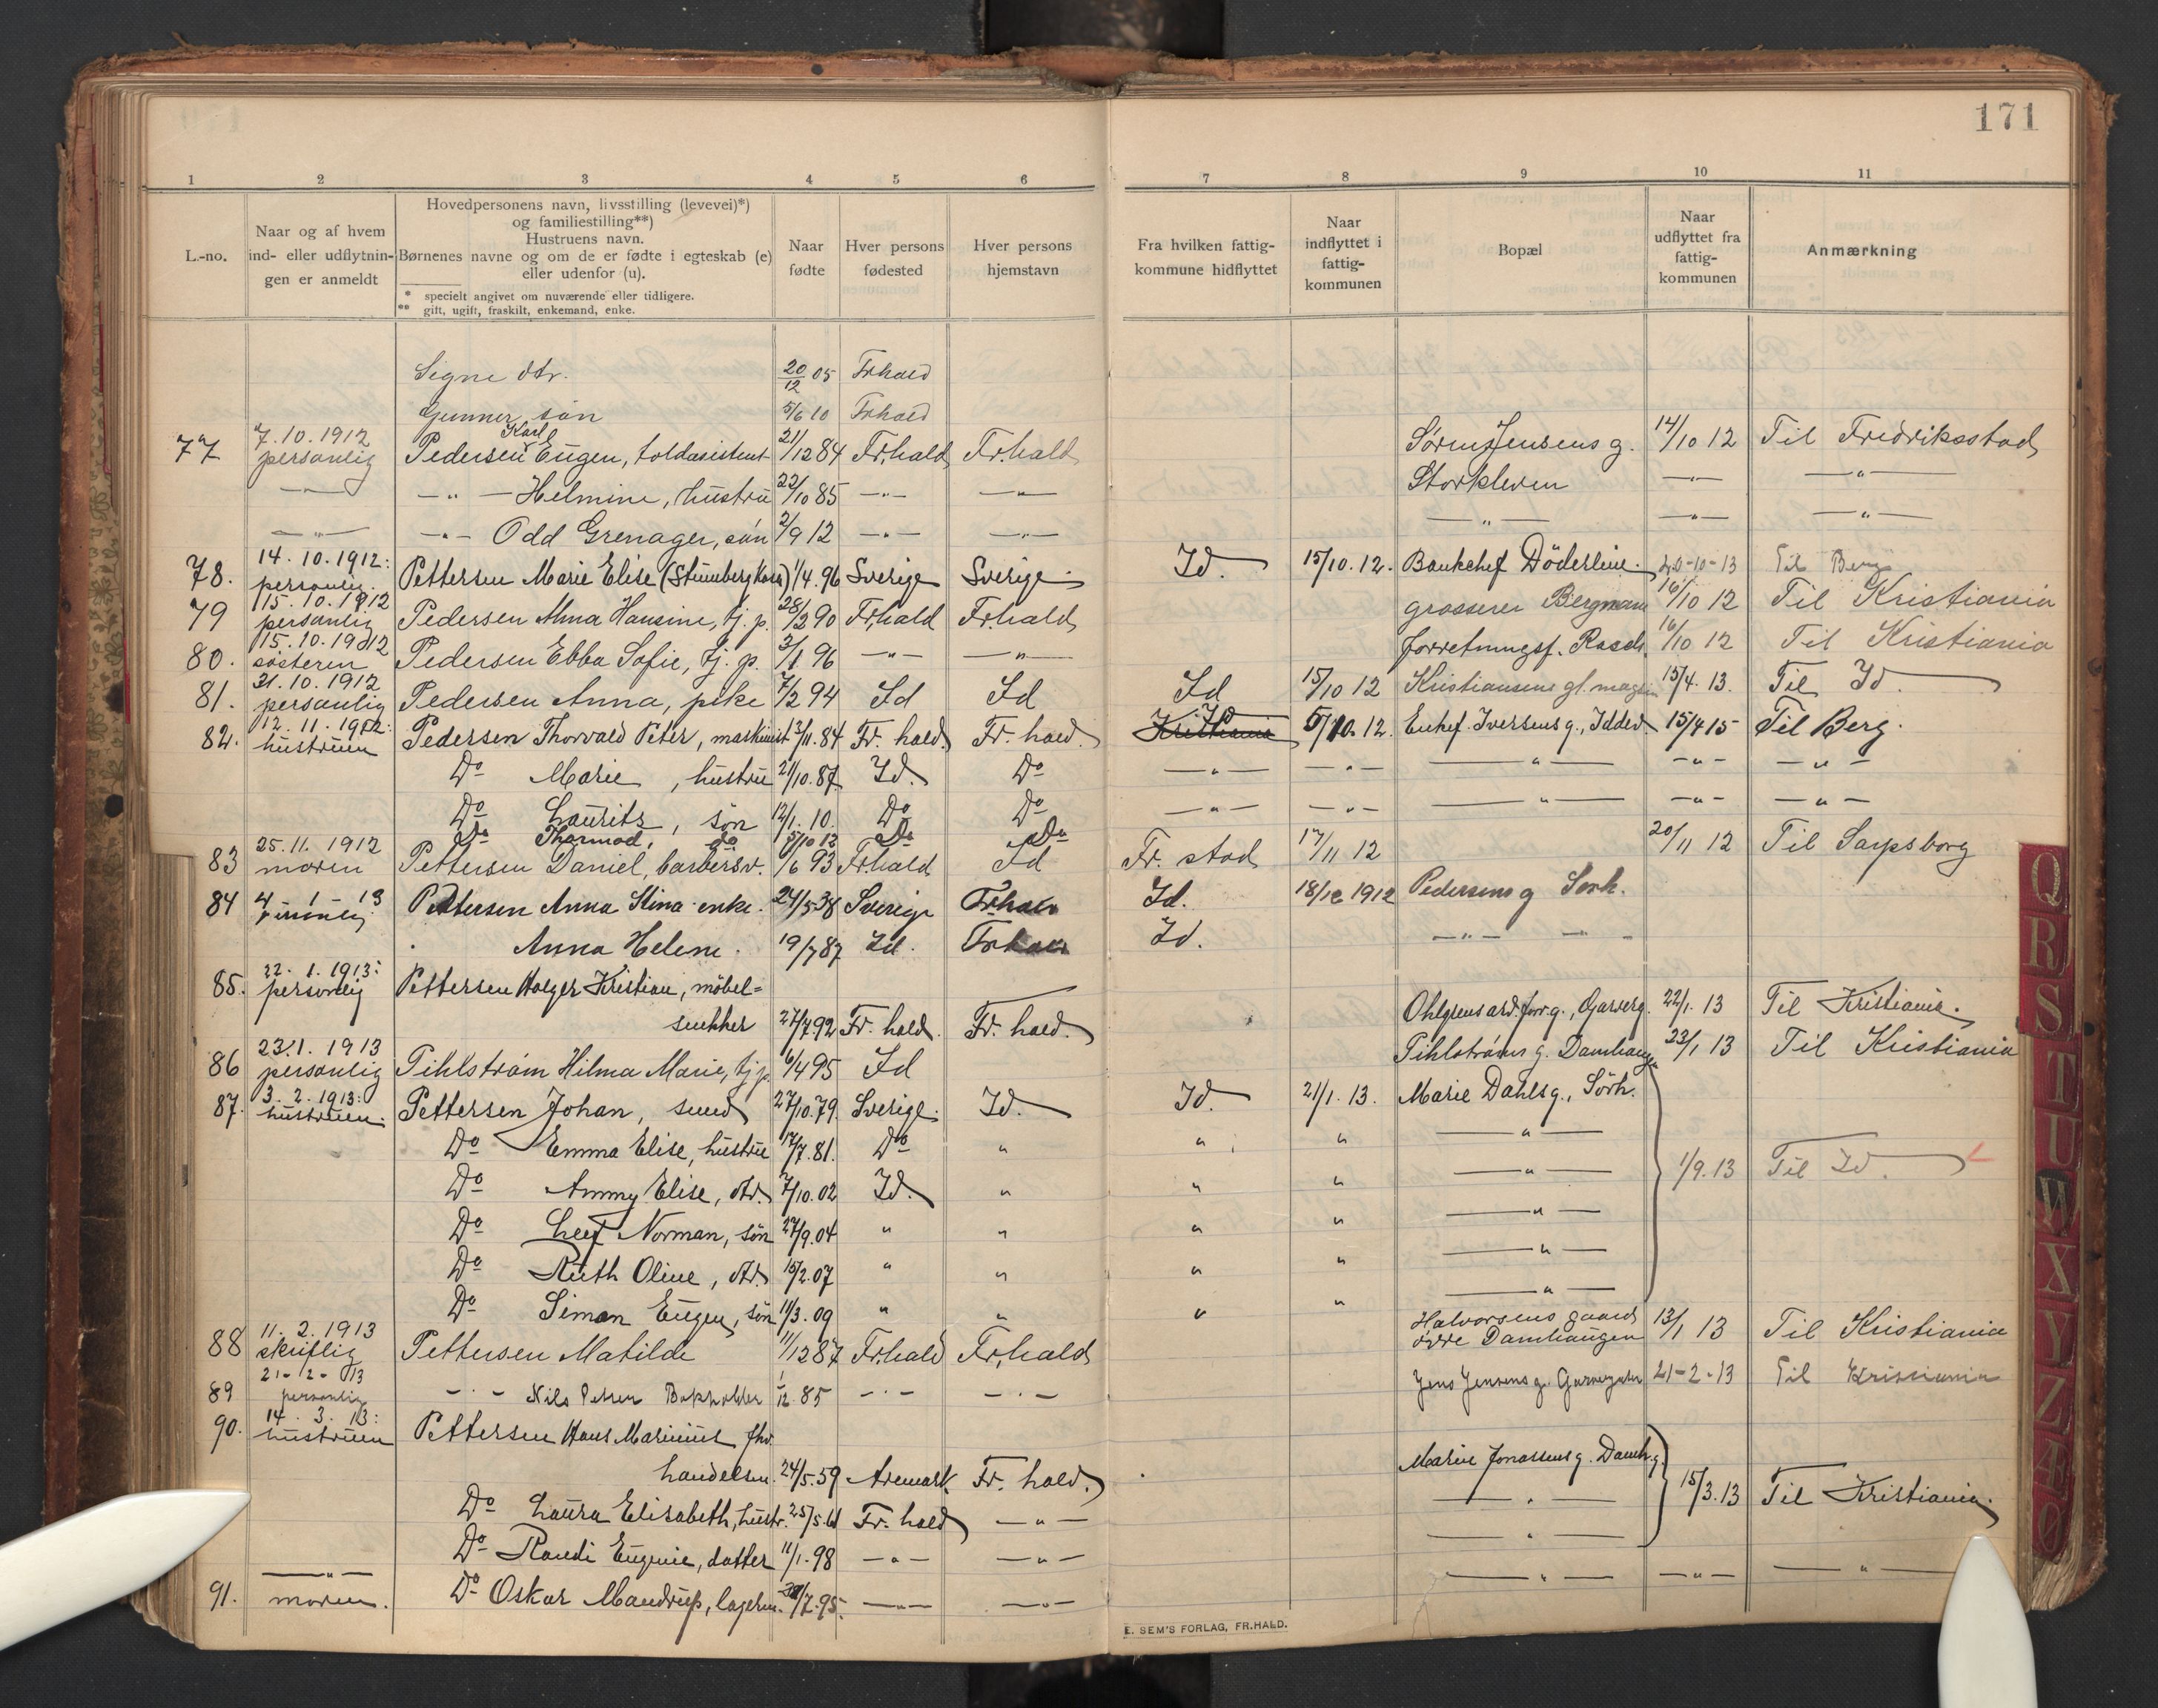 171
1 2 3 4 5 6 7 8 9 10 11
L.-no.
Naar og af hvem
ind- eller udflytnin-
gen er anmeldt
Hovedpersonens navn, livsstilling (levevei)*)
og familiestilling**)
Hustruens navn.
Børnenes navne og om de er fødte i egteskab (e)
eller udenfor (u).
* specielt angivet om nuværende eller tidligere.
** gift, ugift, fraskilt, enkemand, enke.
Naar
fødte
Hver persons
fødested
Hver persons
hjemstavn
Fra hvilken fattig-
kommune hidflyttet
Naar
indflyttet i
fattig-
kommunen
Bopæl
Naar
udflyttet fra
fattig-
kommunen
Anmærkning
Signe dtr. 20/12 05 Frhald
Gunner, søn 5/6 10 Frhald
77 7.10.1912 personlig Pedersen Karl Eugen, toldasistent 21/12 84 Fr.hald Fr.hald Søren Jensens g. 14/10 12 Til Fredriksstad
—"— —"— Helmine, hustru 22/10 85 —"— —"— Storkleven —"— —"—
—"— —"— Odd Grenager, søn 2/9 12 —"— —"— —"— —"— —"—
78. 14.10.1912: personlig. Pettersen Marie Elise 1/4.96 Sverige Sverige Id. 15/10.12. Bankchef Döderlein. 20-10-13 Til Berg
79 15.10.1912 personlig Pedersen Anna Hansine, tj.p. 28/2 90 Fr.hald Fr.hald grosserer Bergmann 16/10 12 Til Kristiania
80. 15.10.1912 søsteren Pedersen Ebba Sofie, tj.p. 3/1 96 —"— —"— forretningsf. Rasch. 16/10 12 Til Kristiania
81. 31.10.1912 personlig Pedersen Anna, pike 7/2 94 Id Id Id 15/10 12 Kristiansens gl. 15/4.13. Til Id.
82. 12.11.1912: hustruen Pedersen Thorvald Peter, maskinist 13/11.84 Fr.hald. Fr.hald. Kristiania Id 5/10.12. Enkef. Iversens g., Idded. 15/4 15 Til Berg.
Do Marie, hustru 21/10.87 Id. Do —"— —"— —"— —"— —"—
Do Laurits, søn 12/1.10. Do Do —"— —"— —"— —"— —"—
Do Thormod, do 15/10 12 Do Do
83 25.11.1912 moren Pettersen Daniel, barbersv. 1/6 93 Fr.hald Id Fr.stad 17/11 12 20/11 12 Til Sarpsborg
84 4 1 13 personlig Pettersen Anna Stina enke. 24/5 38 Sverige Frhald Id. 18/12 1912 Pedersens g Sørh.
Anna Helene. 19/7 87 Id. Frhald Id. —"— —"—
85. 22.1.1913: personlig Pettersen Holger Kristian, møbel=
snekker 27/7 92 Fr.hald. Fr.hald. Ohlgrens arv. forr.g., Garverg. 22/1.13 Til Kristiania.
86 23.1.1913 personlig Pihlstrøm Hilma Marie, tj p. 6/4 95 Id Pihlstrøms g. Damhaugen 23/1 13 Til Kristiania
87. 3.2.1913: hustruen. Pettersen Johan, smed 27/10.79. Sverige. Id. Id. 21/1.13. Marie Dahls g., Sörh.
Do Emma Elise, hustru 17/7.81. Do " " " —"—
Do Ammy Elise, dtr. 7/10.02 Id. " " " —"— 1/9.13 Til Id.
Do Leif Norman, søn 27/9.04 " " " " —"—
Do Ruth Oline, dtr. 15/2.07 " " " " —"—
Do Simon Eugen, søn 11/3.09 " " " " —"—
88 11.2.1913 skriftlig Pettersen Matilde 11/12 87 Fr.hald Fr.hald Halvorsens gaard øvre Damhaugen 13/1 13 Til Kristiania
89 21-2-13 personlig —"— Nils Petter Bokholder 1/12.85 —"— —"— Jens Jensens g. Garvergaten 21-2-13 Til Kristiania
90. 14.3.13: hustruen Pettersen Hans Marinius fhv.
handelsm. 24/5.59 Aremark Fr.hald. Marie Jonassens g. Damhg.
Do Laura Elisabeth, hustr. 25/5.61 Fr.hald —"— —"— 15/3.13 Til Kristiania.
Do Randi Eugenie, datter 11/1.98 —"— —"— —"—
91. —"— moren. Do Oskar Mandrup, lagerm. 20/7.95. —"— —"— —"— —"— —"—
E. SEM'S FORLAG, FR.HALD.
Q
R
S
T
U
W
X
Y
Z
Æ
Ø